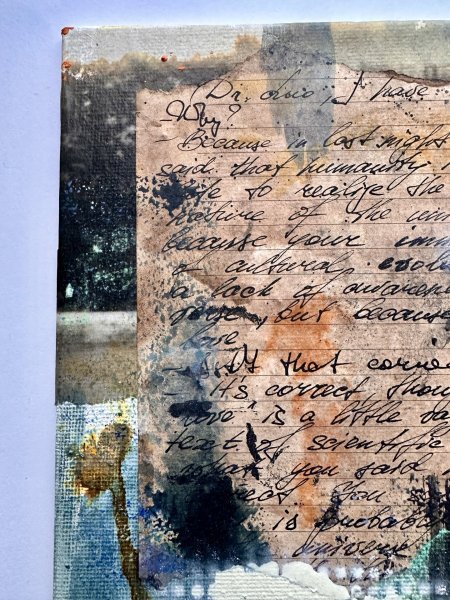 (Dr. Luo, I have
Why?
- Because in last night
said that humanity
to realize the
nature of the univ
because your imm
of cultural evolu
a lack of awarene
verse, but because
love
- Is that corre
- It's correct thou
"love" is a little va
text of scientific
what you said
great. You
is probab
univers